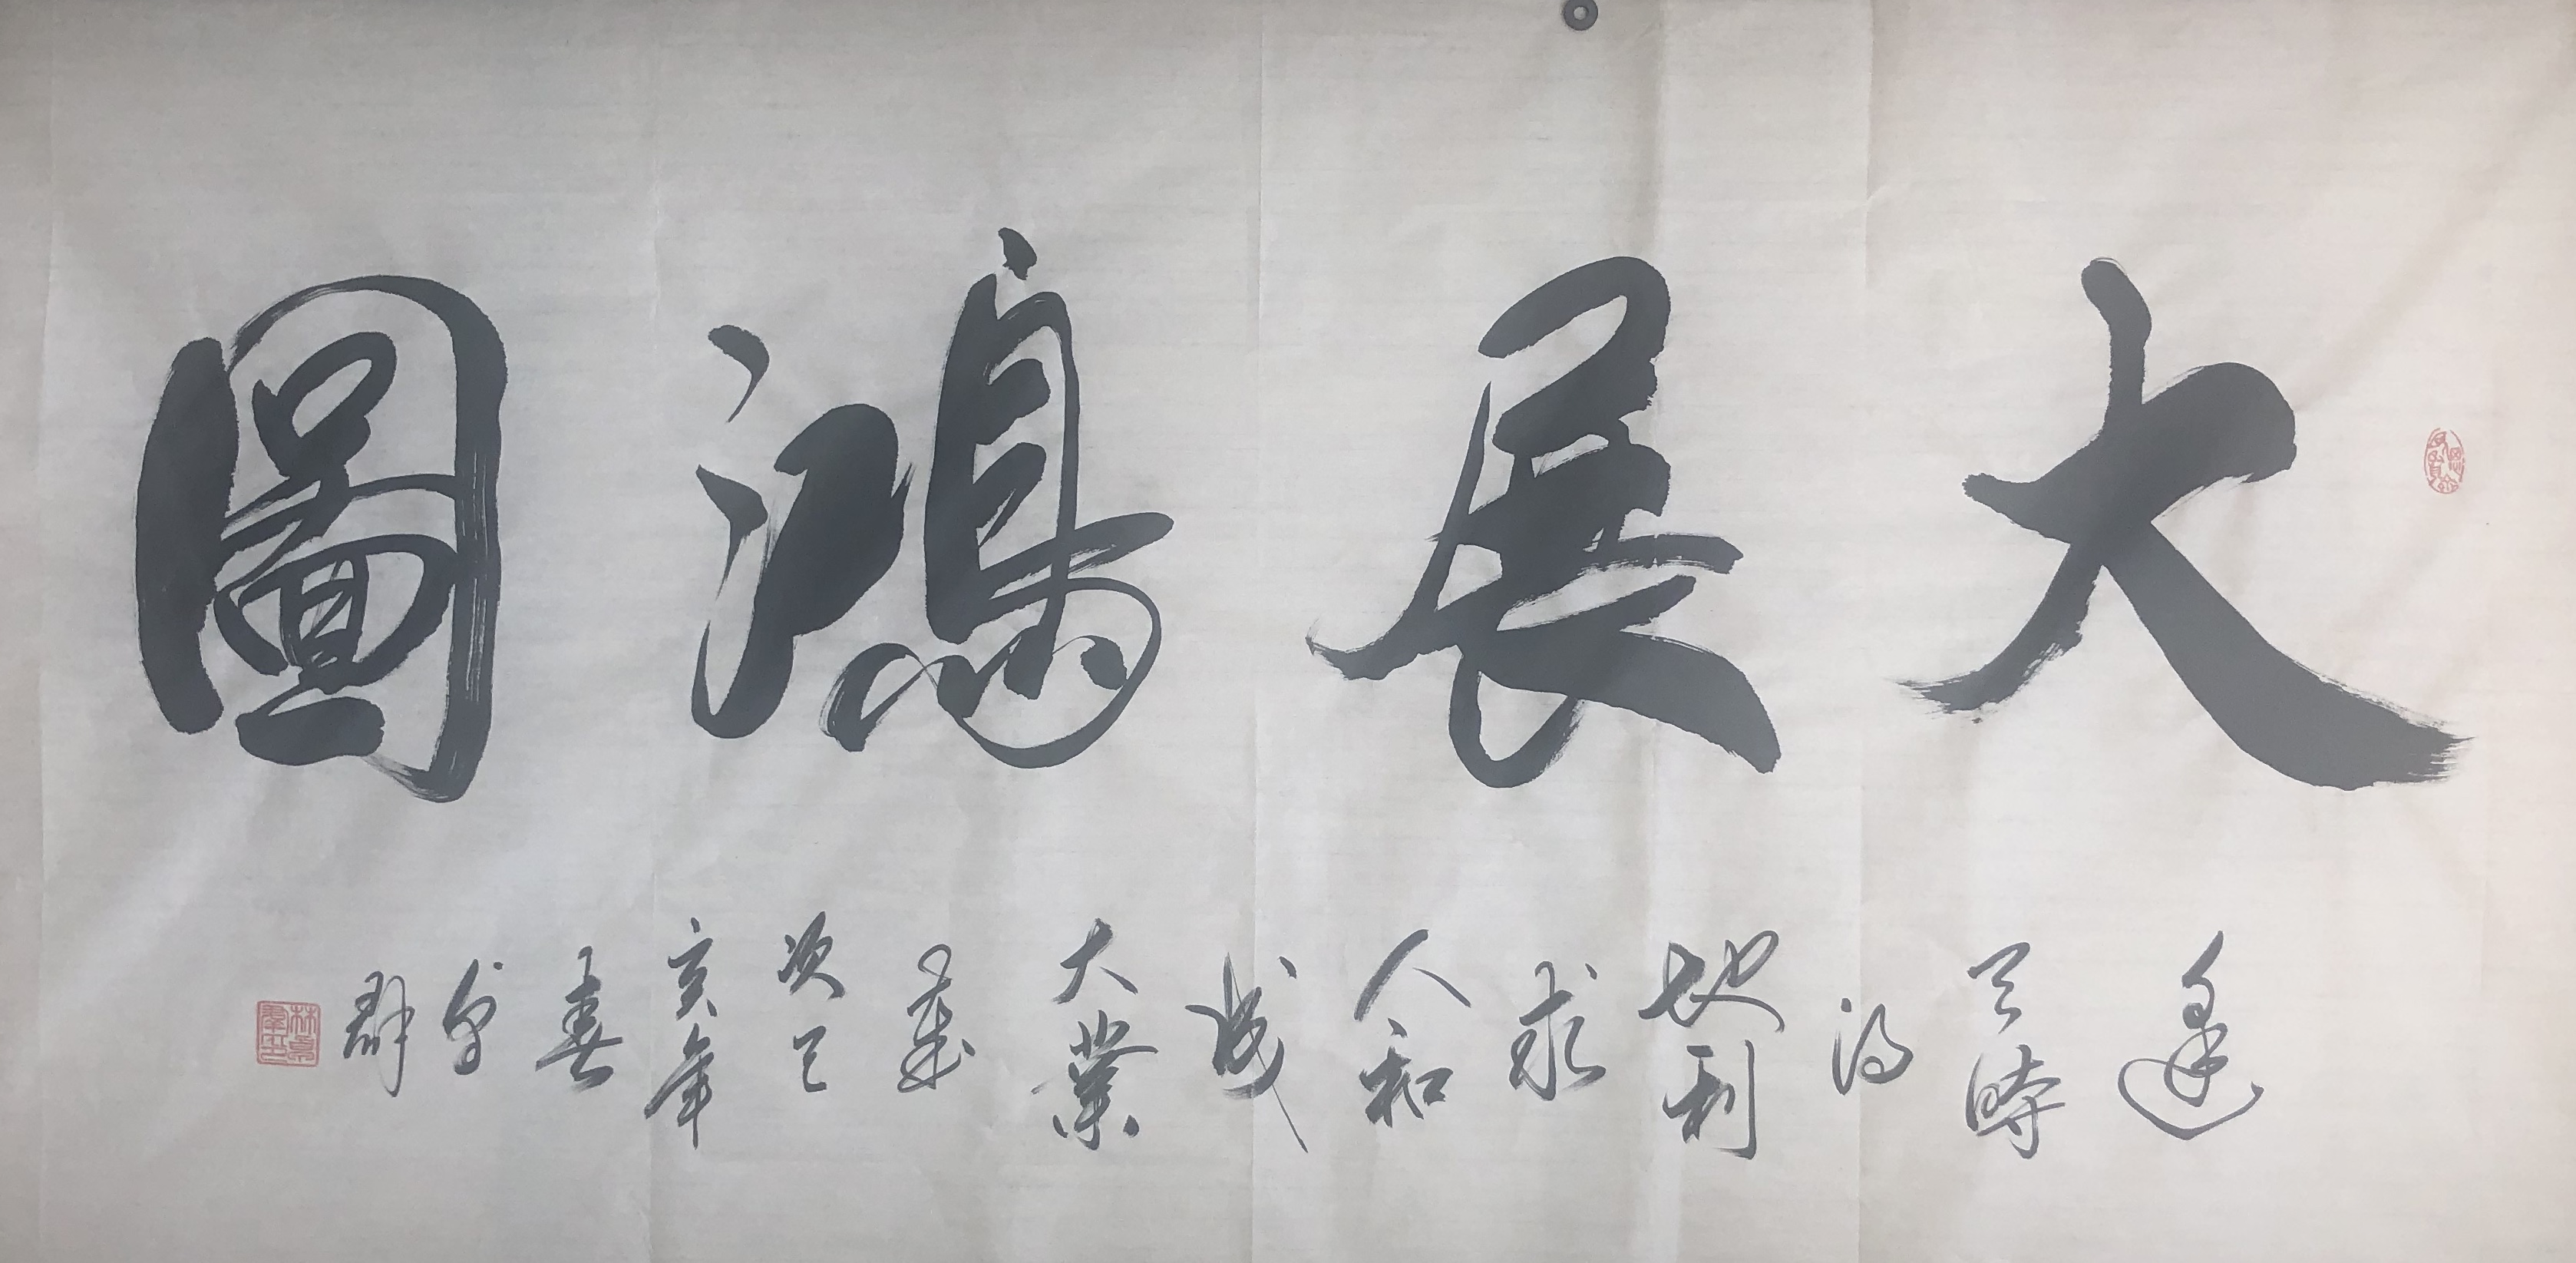 大展鴻圖
逢天時得地利求人和成大業歲次己亥年春月群